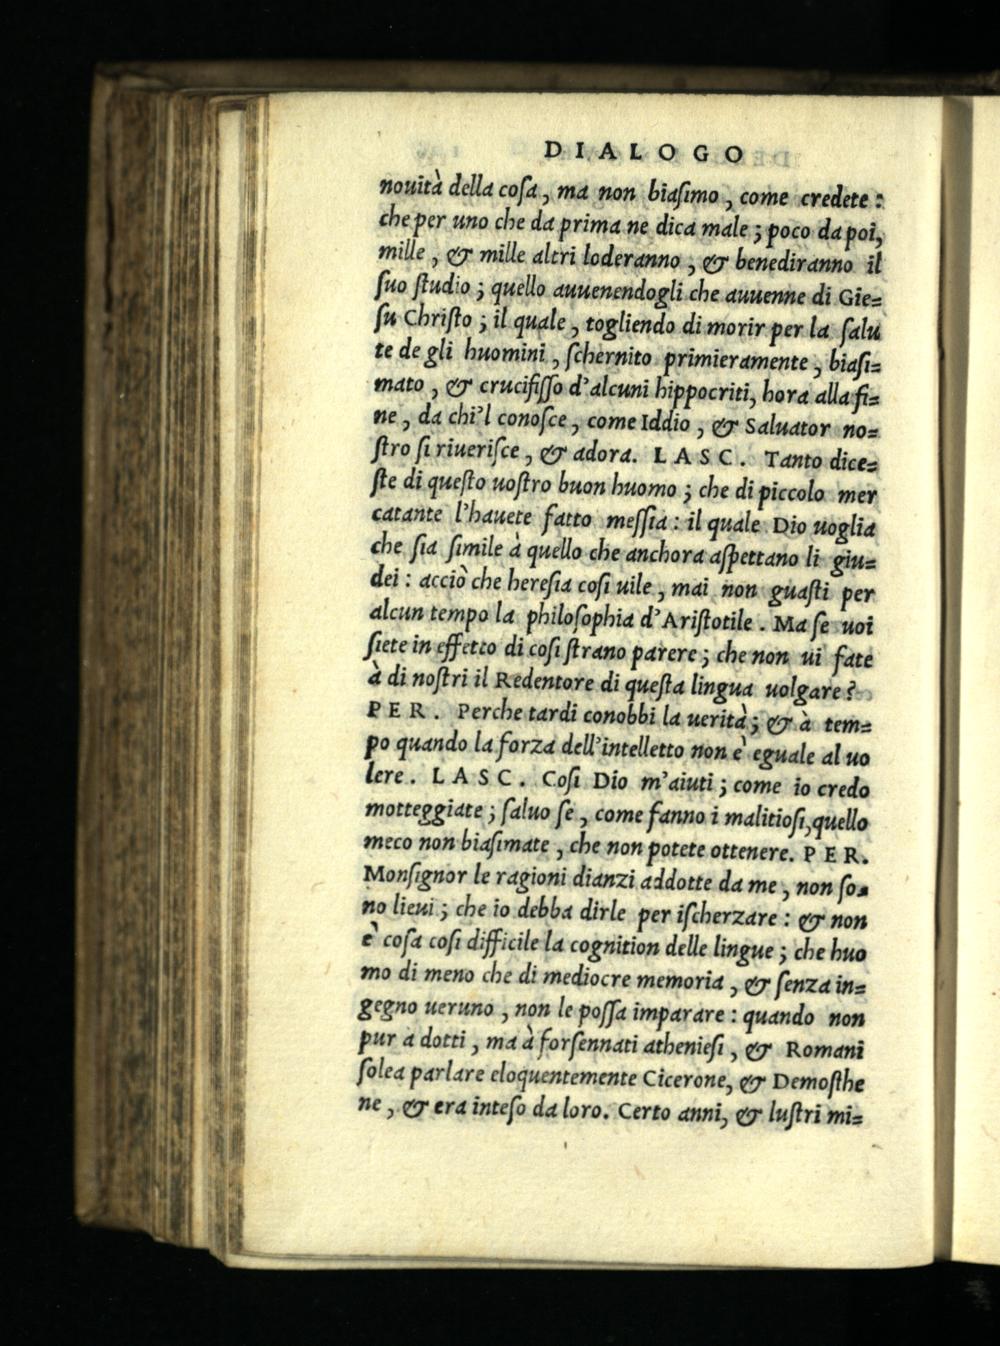 DIALOGO
nouità della coſa, ma non biaſimo, come credete:
che per uno che da prima ne dica male; poco da poi,
mille, & mille altri loderanno, & benediranno il
ſuo ſtudio; quello auuenendogli che auuenne di Gie=
ſu Chriſto; il quale, togliendo di morir per la ſalu
te de gli huomini, ſchernito primieramente, biaſi=
mato, & crucifiſſo d'alcuni hippocriti, hora alla fi=
ne, da chi'l conoſce, come Iddio, & Saluator no=
ſtro ſi riueriſce, & adora. LASC. Tanto dice=
ſte di queſto uoſtro buon huomo; che di piccolo mer
catante l'hauete fatto meſſia: il quale Dio uoglia
che ſia ſimile à quello che anchora aſpettano li giu=
dei: acciò che hereſia coſi uile, mai non guaſti per
alcun tempo la philoſophia d'Ariſtotile. Ma ſe uoi
ſiete in effetto di coſi ſtrano parere; che non ui fate
à di noſtri il Redentore di queſta lingua uolgare?
PER. Perche tardi conobbi la uerità; & à tem=
po quando la forza dell'intelletto non è eguale al uo
lere. LASC. Coſi Dio m'aiuti; come io credo
motteggiate; ſaluo ſe, come fanno i malitioſi, quello
meco non biaſimate, che non potete ottenere. PER.
Monſignor le ragioni dianzi addotte da me, non ſo=
no lieui; che io debba dirle per iſcherzare: & non
è coſa coſi difficile la cognition delle lingue; che huo
mo di meno che di mediocre memoria, & ſenza in=
gegno ueruno, non le poſſa imparare: quando non
pur a dotti, ma à forſennati athenieſi, & Romani
ſolea parlare eloquentemente Cicerone, & Demoſthe
ne, & era inteſo da loro. Certo anni, & luſtri mi=